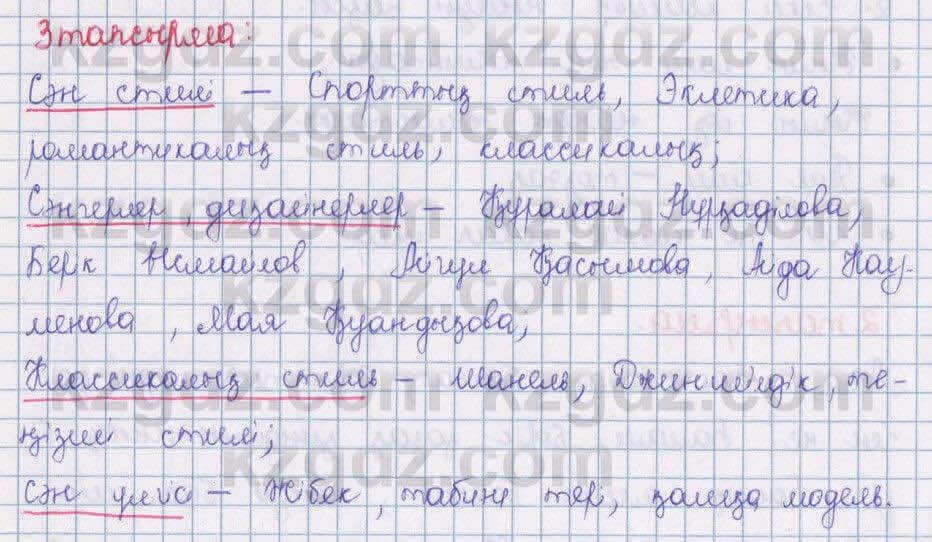 3 тапсырма:
Сән стилі – Спорттық стиль, Эклетика,
романтикалық стиль, классикалық;
Сәнгерлер, дизайнерлер – Құралай Нұрқаділова,
Берк Исмаилов, Айгүл Қасымова, Аида Кау-
менова, Мая Қуандықова;
Классикалық стиль – шанель, Джинсілік, те-
ңізші стилі;
Сән үлгіс – Жібек, табиғи тері, қалыңқа модель.
kzgdz.com